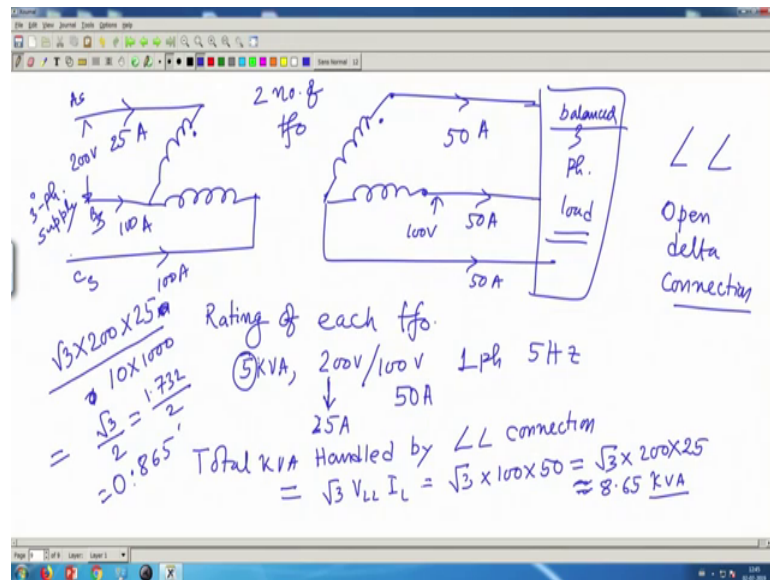 File Edit View Journal Tools Options Help
Sans Normal 12
As
25 A
200V
3-ph.
supply
Bs
100A
Cs
100A
2 no. of
tfo
50 A
100V
50A
50A
balanced
3
Ph.
load
∠ ∠
Open
delta
Connection
√3×200×25
10×1000
= √3/2 = 1.732/2
=0.865
Rating of each tfo.
5KVA, 200V/100V 1ph 5Hz
25A
50A
Total KVA Handled by ∠∠ connection
= √3 VLL IL = √3 ×100×50 = √3× 200×25
≈ 8.65 KVA
Page 9 of 9 Layer: Layer 1